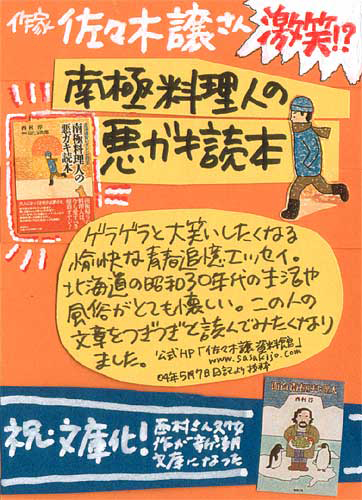 作家 佐々木譲さん 激笑!?
南極料理人の
悪ガキ読本
西村 淳
南極料理人の
悪ガキ読本
ゲラゲラと大笑いしたくなる
愉快な青春追憶エッセイ。
北海道の昭和30年代の生活や
風俗がとても懐しい。この人の
文章をつぎつぎと読んでみたくなり
ました。公式HP「佐々木譲資料館」
www.sasakijo.com
04年5月7日日記より抜粋
祝・文庫化!
西村さん
作が新潮
文庫になった
西村 淳